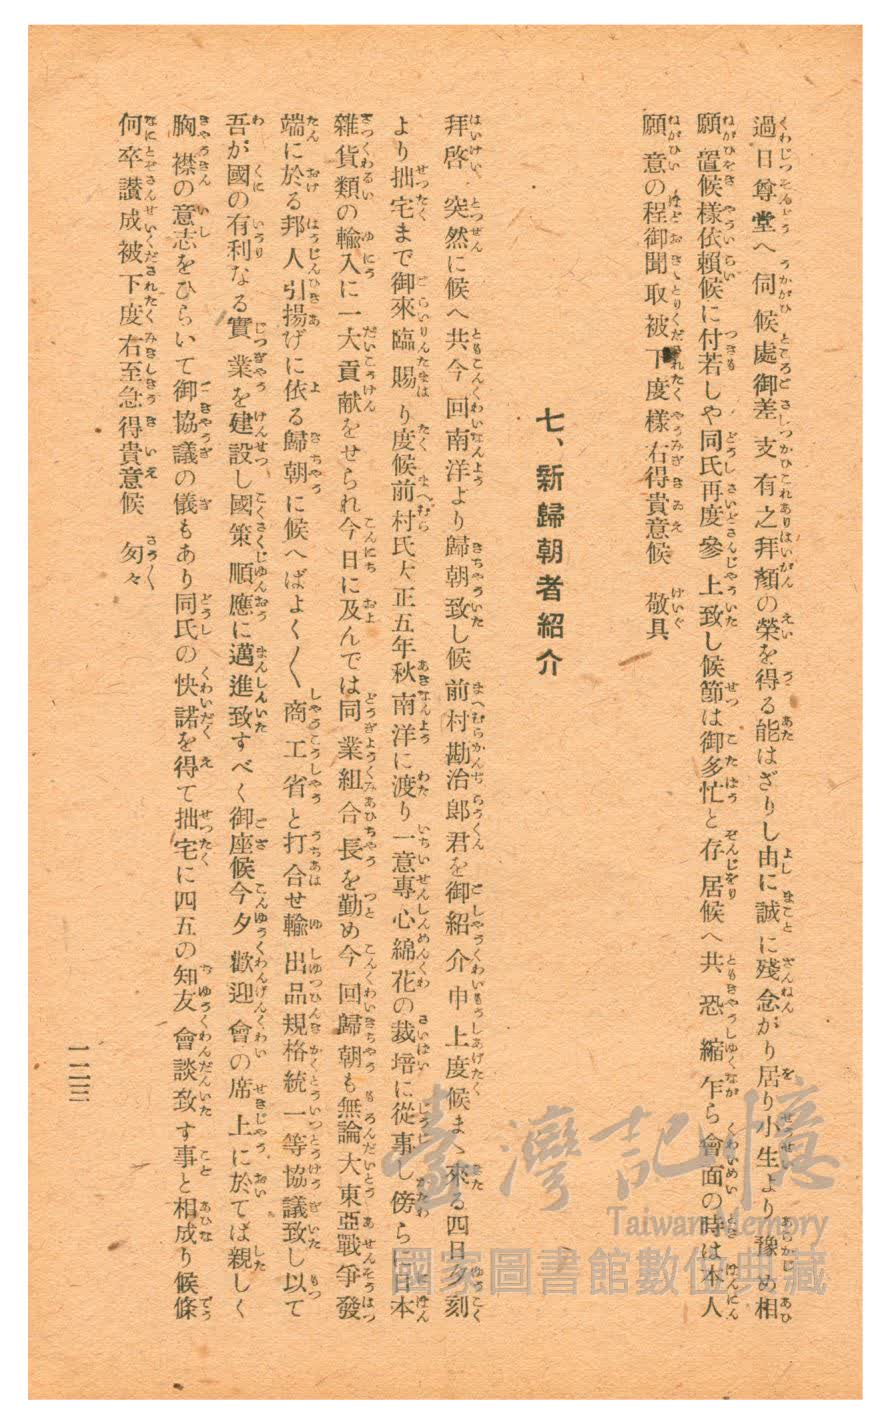 過日尊堂へ伺候處御差支有之拜顏の榮を得る能はざりし由に誠に殘念がり居り小生より豫め相
願置候樣依賴候に付若しや同氏再度參上致し候節は御多忙と存居候へ共恐縮乍ら會面の時は本人
願意の程御聞取被下度樣右得貴意候　敬具
七、新歸朝者紹介
拜啓　突然に候へ共今回南洋より歸朝致し候前村勘治郞君を御紹介申上度候まゝ來る四日夕刻
より拙宅まで御來臨賜り度候前村氏大正五年秋南洋に渡り一意專心綿花の栽培に從事し傍ら日本
雜貨類の輸入に一大貢献をせられ今日に及んでは同業組合長を勤め今回歸朝も無論大東亞戰爭發
端に於る邦人引揚げに依る歸朝に候へばよく〱商工省と打合せ輸出品規格統一等協議致し以て
吾が國の有利なる實業を建設し國策順應に邁進致すべく御座候今夕歡迎會の席上に於てば親しく
胸襟の意志をひらいて御協議の儀もあり同氏の快諾を得て拙宅に四五の知友會談致す事と相成り候條
何卒讃成被下度右至急得貴意候　匆々
一二三
臺灣記憶
Taiwan Memory
國家圖書館數位典藏